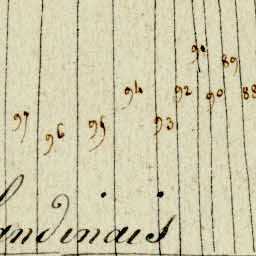 91
89
94 92 90 88
97 96 95 93
andinais